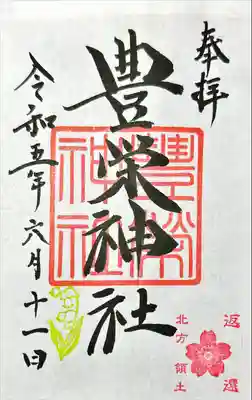 奉拝
豊栄神社
豊栄神社
令和五年六月十一日
返還
北方領土